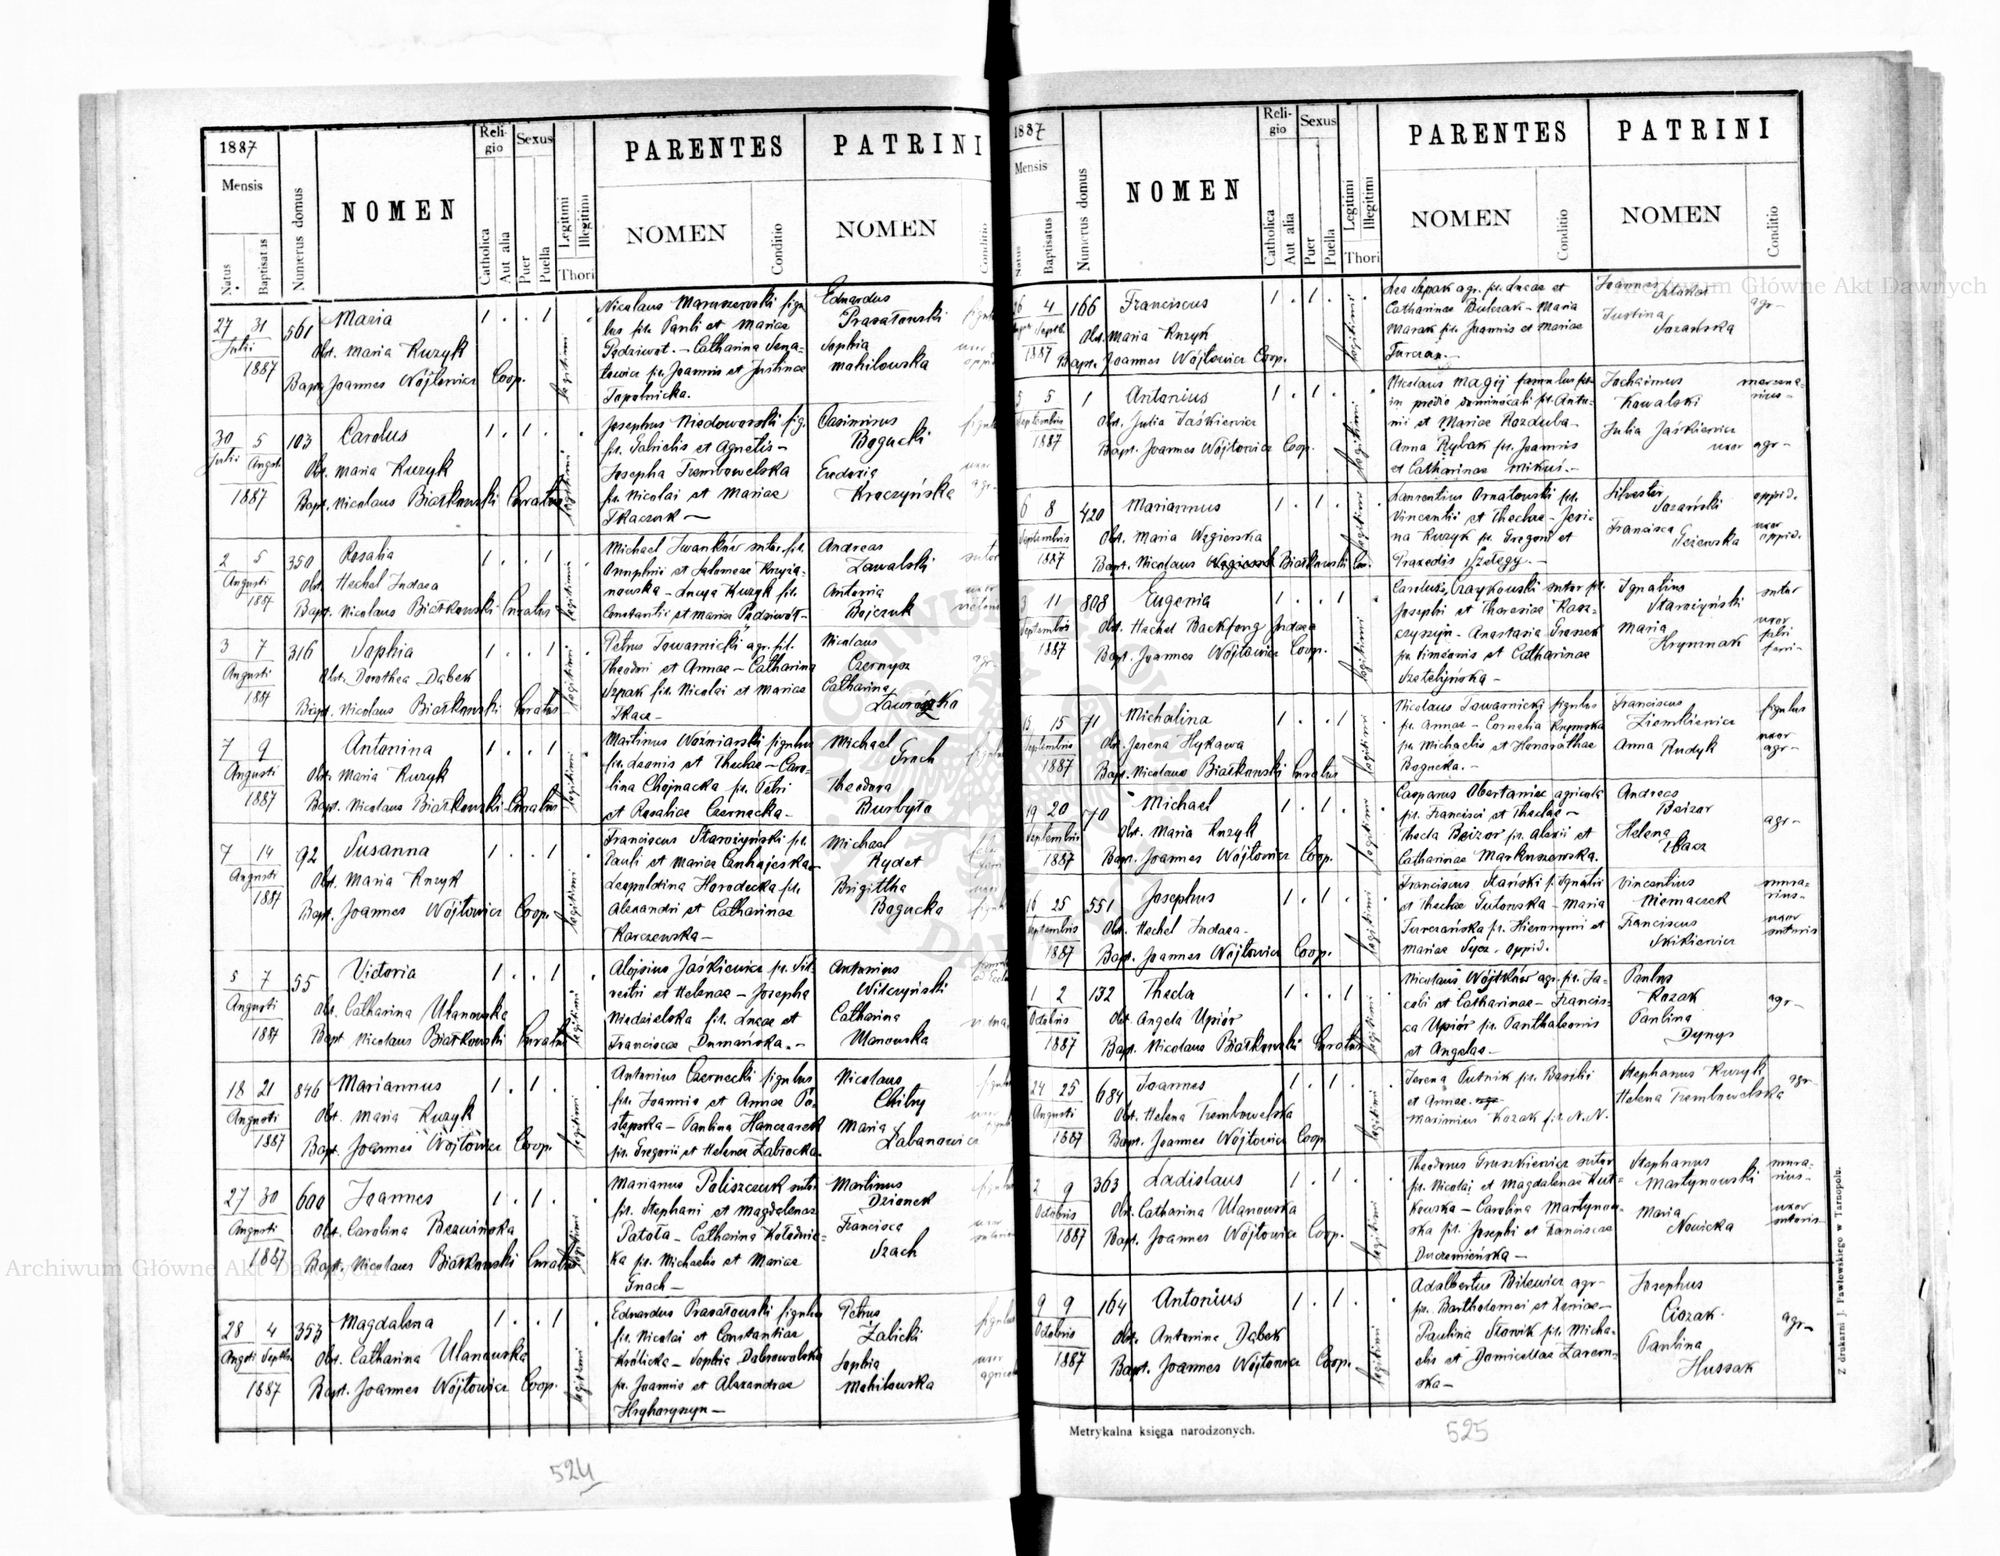 1887
Mensis
Natus
Baptisatus
Numerus domus
NOMEN
Religio
Catholica
Aut alia
Sexus
Puer
Puella
Legitimi
Illegitimi
Thori
PARENTES
NOMEN
Conditio
PATRINI
NOMEN
27 31 561 Maria 1 . . 1
Julii
1887
Obst. Maria Kuzyk
Bapt. Joannes Wójtowicz Coop.
legitimi
Nicolaus Maruszewski figu
lus fil. Pauli et Mariae
Catharina
fil. Joannis et Justinae
Topolnicka.
Eduardus
Prasałowski
Sophia
Mohilowska
30 5 103 Carolus 1 . 1 .
Julii Augusti
1887
Obst. Maria Kuzyk
Bapt. Nicolaus Białkowski Curatus
legitimi
Josephus Niedoworski fig.
fil. Gabrielis et Agnetis –
Josepha Trembowelska
fil. Nicolai et Mariae
Tkaczuk –
Casimirus
Bogucki
Kraczyńska
2 5 350 Rosalia 1 . . 1
Augusti
1887
Obst. Hechel Judaea
Bapt. Nicolaus Białkowski Curatus
legitimi
Michael Iwanków sutor fil.
Onuphrii et Salomeae Krzyża-
nowska – Lucya Kuzyk fil.
Constantii et Maria
Andreas
Zawalski
Antonia
Bojczuk
3 7 316 Sophia 1 . . 1
Augusti
1887
Obst. Dorothea Dąbek
Bapt. Nicolaus Białkowski Curatus
legitimi
Petrus Towarnicki agr. fil.
Theodori et Annae – Catharina
Szpak fil. Nicolai et Mariae
Tkacz –
Nicolaus
Czernysz
Catharina
7 9 Antonina 1 . . 1
Augusti
1887
Obst. Maria Kuzyk
Bapt. Nicolaus Białkowski Curatus
legitimi
Martinus Woźniarski figulus
fil. Leonis et Theclae – Caro-
lina Chojnacka fil. Petri
et Rosaliae Czernecka –
Michael
Grach
Theodora
Burbyło
7 14 92 Susanna 1 . . 1
Augusti
1887
Obst. Maria Kuzyk
Bapt. Joannes Wójtowicz Coop.
legitimi
Franciscus Starożyński fil.
Pauli et Mariae
Leopoldina Horodecka fil.
Alexandri et Catharinae
Karczewska –
Michael
Rydet
Brigittha
Bogucka
5 7 55 Victoria 1 . . 1
Augusti
1887
Obst. Catharina Ulanowska
Bapt. Nicolaus Białkowski Curatus
legitimi
Alojsius Jaśkiewicz fil. Sil-
vestri et Helenae – Josepha
Niedzielska fil. Lucae et
Franciscae Dumańska. –
Antonius
Wilczyński
Catharina
Ulanowska
18 21 846 Mariannus 1 . 1 .
Augusti
1887
Obst. Maria Kuzyk
Bapt. Joannes Wójtowicz Coop.
legitimi
Antonius Czernecki figulus
fil. Joannis et Annae Po-
stępska – Paulina Hanczarek
fil. Gregorii et Helenae Zabłocka.
Nicolaus
Chilny
Maria
Łabanowicz
27 30 600 Joannes 1 . 1 .
Augusti
1887
Obst. Carolina Bezwińska
Bapt. Nicolaus Białkowski Curatus
legitimi
Marianus Poliszczuk sutor
fil. Stephani et Magdalenae
Patoła – Catharina Kołodnic-
ka fil. Michaelis et Mariae
Gnach –
Martinus
Dzionek
Francisca
Szach
28 4 353 Magdalena 1 . . 1
Augusti Septbr.
1887
Obst. Catharina Ulanowska
Bapt. Joannes Wójtowicz Coop.
legitimi
Eduardus Prasałowski figulus
fil. Nicolai et Constantiae
Królicka – Sophia Dabrowolska
fil. Joannis et Alexandrae
Hryhoryszyn –
Petrus
Zalicki
Sophia
Mohilowska
524
1887
Mensis
Natus
Baptisatus
Numerus domus
NOMEN
Religio
Catholica
Aut alia
Sexus
Puer
Puella
Legitimi
Illegitimi
Thori
PARENTES
NOMEN
Conditio
PATRINI
NOMEN
Conditio
4 166 Franciscus 1 . 1 .
Septbr.
1887
Obst. Maria Kuzyk
Bapt. Joannes Wójtowicz Coop.
legitimi
Szpak agr. fil. Lucae et
Catharinae Bulczak – Maria
Marak fil. Joannis et Mariae
Turczan –
Joannes
Justina
Sozańska
agr –
5 5 1 Antonius 1 . 1 .
Septembris
1887
Obst. Julia Jaśkiewicz
Bapt. Joannes Wójtowicz Coop.
legitimi
Nicolaus Magij famulus
in predio dominicali fil. Anto-
nii et Mariae Kozduba –
Anna Rybak fil. Joannis
et Catharinae Mikus. –
Jochaimus
Kowalski
Julia Jaśkiewicz
uxor agr –
6 8 420 Mariannus 1 . 1 .
Septembris
1887
Obst. Maria Węgierska
Bapt. Nicolaus Białkowski Cur.
legitimi
Laurentius Ornatowski fil.
Vincentii et Theclae – Jeri-
na Kuzyk fil. Gregorii et
Praxedis Szelegy. –
Silvester
Sozański
Francisca
oppid.
uxor
oppid.
3 11 808 Eugenia 1 . . 1
Septembris
1887
Obst. Hechel Backfong Judaea
Bapt. Joannes Wójtowicz Coop.
legitimi
Carolus Czaykowski sutor fil.
Josephi et Theresiae Kasz-
czyszyn – Anastasia
fil. Simeonis et Catharinae
Szatelyńska –
Ignatius
Starożyński
Maria
Hrymnak
sutor
uxor
fabri
13 15 71 Michalina 1 . . 1
Septembris
1887
Obst. Jerena Hykawa
Bapt. Nicolaus Białkowski Curatus
legitimi
Nicolaus Towarnicki figulus
fil. Annae – Cornelia
fil. Michaelis et Honoratae
Bogucka. –
Franciscus
Ziombiewicz
Anna Rudyk
figulus
uxor
agr –
19 20 70 Michael 1 . 1 .
Septembris
1887
Obst. Maria Kuzyk
Bapt. Joannes Wójtowicz Coop.
legitimi
Casparus Obertaniec agricola
fil. Francisci et Theclae –
Thecla Beizor fil. Alexii et
Catharinae Markuszewska.
Andreas
Beizor
Helena
Tkacz
agr –
16 25 551 Josephus 1 . 1 .
Septembris
1887
Obst. Hechel Judaea –
Bapt. Joannes Wójtowicz Coop.
legitimi
Franciscus Stański f. Ignatii
et Theclae Gutowska – Maria
Turczańska fil. Hieronymi et
Mariae Sycz. oppid.
Vincentius
Niemaczek
Franciscus
Skikiewicz
mura-
rius –
uxor
sutoris
1 2 132 Thecla 1 . . 1
Octobris
1887
Obst. Angela Upiór
Bapt. Nicolaus Białkowski Curatus
legitimi
Nicolaus Wójtków agr. fil. Ja-
cobi et Catharinae – Francis-
ca Upiór fil. Panthaleonis
et Angelae –
Paulus
Kozak
Paulina
Dynys
agr –
24 25 684 Joannes 1 . 1 .
Augusti
1887
Obst. Helena Trembowelska
Bapt. Joannes Wójtowicz Coop.
legitimi
Jerena Putnik fil. Basilii
et Annae.
Maximius Kozak fil. N. N.
Stephanus Kuzyk
Helena Trembowelska
agr –
2 9 363 Ladislaus 1 . 1 .
Octobris
1887
Obst. Catharina Ulanowska
Bapt. Joannes Wójtowicz Coop.
legitimi
Theodorus Gruszkiewicz sutor
fil. Nicolai et Magdalenae Kut-
kowska – Carolina Martynow-
ska fil. Josephi et Franciscae
Duczemińska –
Stephanus
Martynowski
Maria
Nowicka
mura-
rius –
uxor
sutoris
9 9 164 Antonius 1 . 1 .
Octobris
1887
Obst. Antonina Dąbek
Bapt. Joannes Wójtowicz Coop.
legitimi
Adalbertus Bilewicz agr –
fil. Bartholomei et Xeniae –
Paulina Słowik fil. Micha-
elis et Domicellae Zarem-
ska –
Josephus
Ciozak
Paulina
Hussak
agr –
Metrykalna księga narodzonych.
525
Z drukarni J. Pawłowskiego w Tarnopolu.
Archiwum Główne Akt Dawnych
Archiwum Główne Akt Dawnych